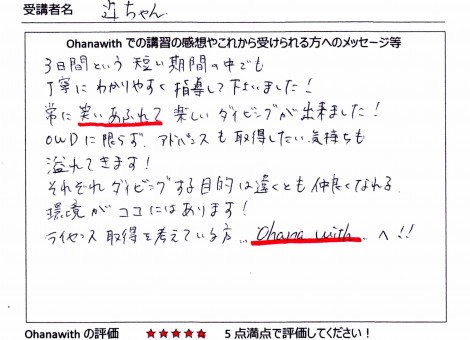 受講者名 近ちゃん
Ohanawith での講習の感想やこれから受けられる方へのメッセージ等
3日間という 短い期間の中でも
丁寧に わかりやすく 指導して下さいました！
常に 笑いあふれて 楽しい ダイビングが 出来ました！
OWDに限らず、アドバンスも 取得したい 気持ちも
溢れてきます！
それぞれ ダイビングする 目的は 違くとも 仲良くなれる
環境が ココにはあります！
ライセンス 取得を考えている方… Ohana with… へ!!
Ohanawith の評価 ★★★★★ 5 点満点で評価してください！